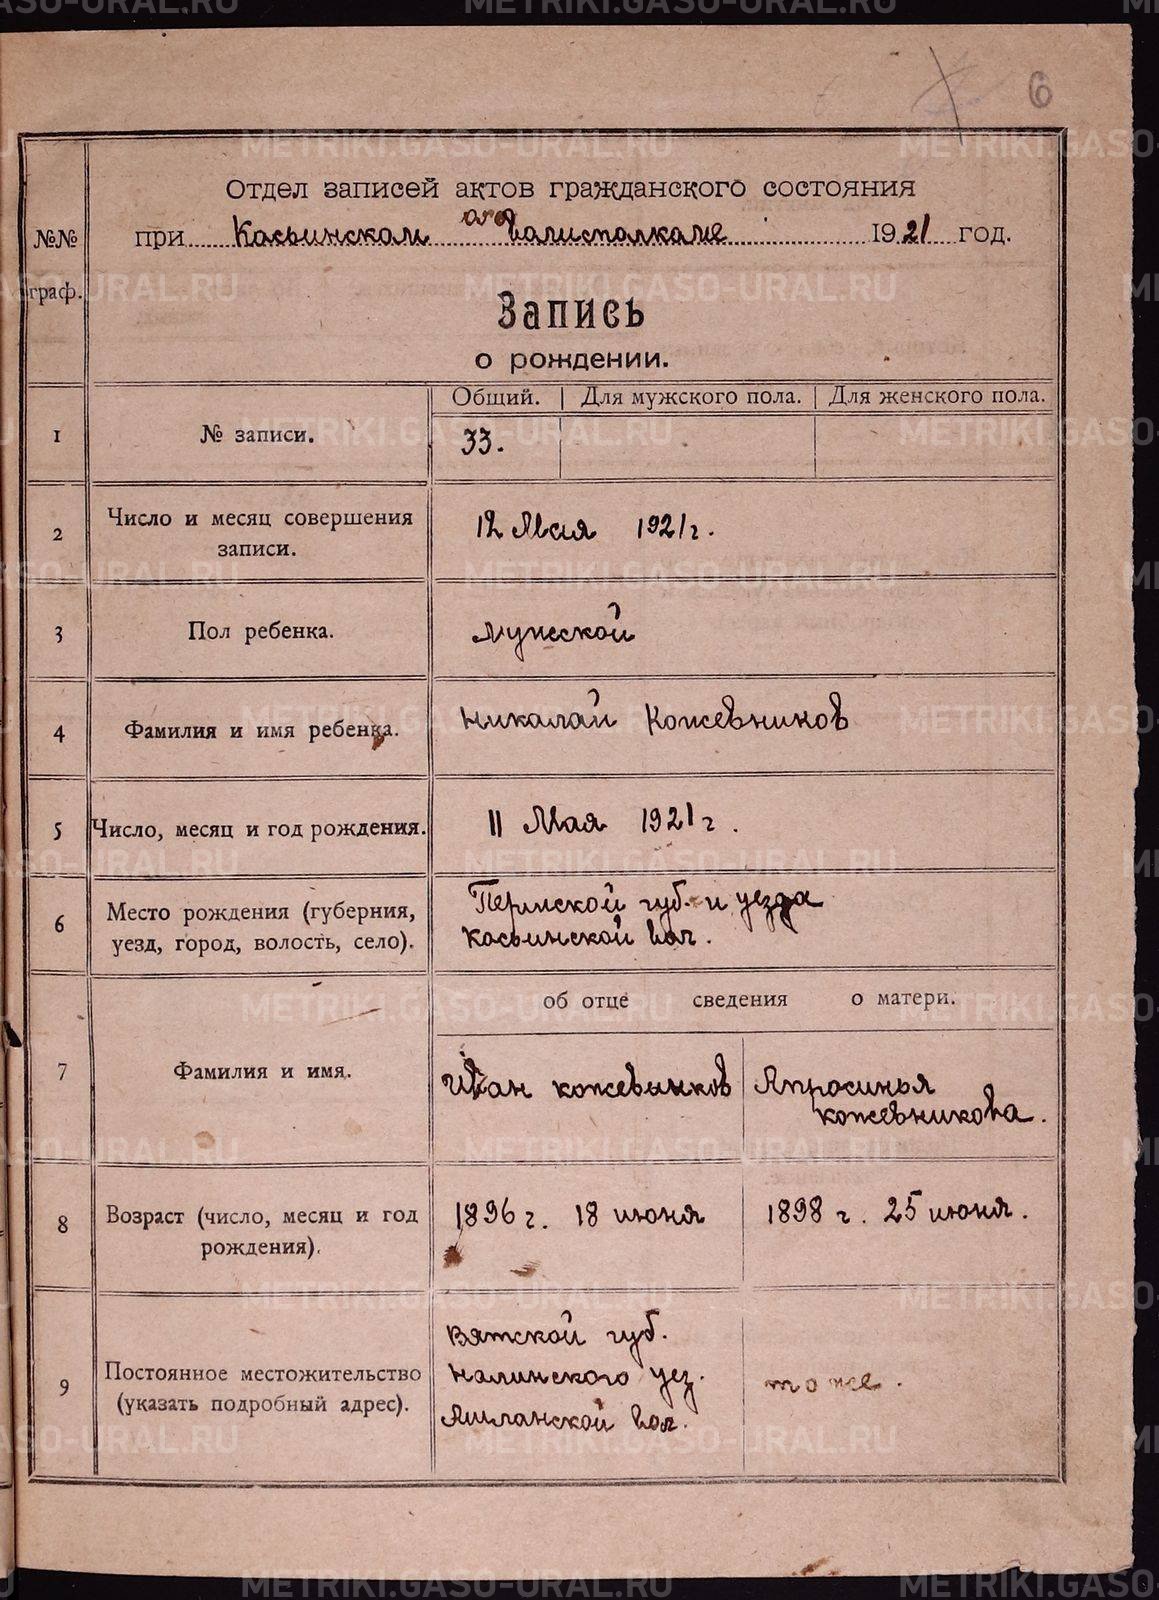 6
Отдел записей актов гражданского состояния
№№ граф.
при Касьинском волисполкоме 1921 год.
Запись
о рождении.
Общий. Для мужского пола. Для женского пола.
1 № записи. 33.
2 Число и месяц совершения записи. 12 Мая 1921 г.
3 Пол ребенка. Мужской
4 Фамилия и имя ребенка. Николай Кожевников
5 Число, месяц и год рождения. 11 Мая 1921 г.
6 Место рождения (губерния, Пермской губ. и уезда
уезд, город, волость, село). Касьинской вол.
об отце сведения о матери.
7 Фамилия и имя. Иван Кожевников Апросинья
Кожевникова.
8 Возраст (число, месяц и год рождения). 1896 г. 18 июня 1898 г. 25 июня.
Вятской губ.
9 Постоянное местожительство Нолинского уез. тоже.
(указать подробный адрес). вол.
METRIKI.GASO-URAL.RU